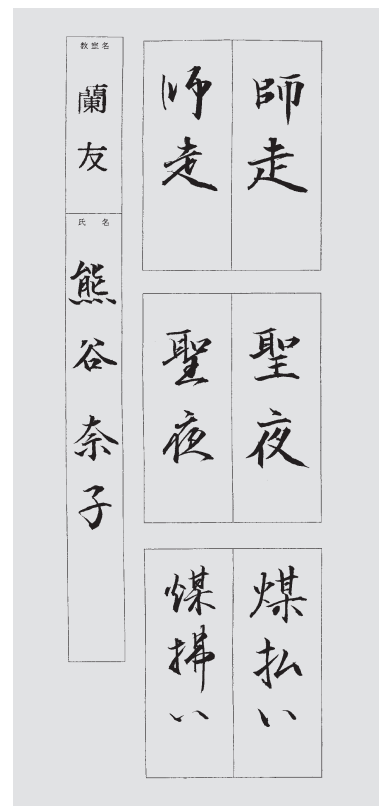 師走
師走
聖夜
聖夜
煤払い
煤拂い
教室名
蘭友
氏名
熊谷奈子